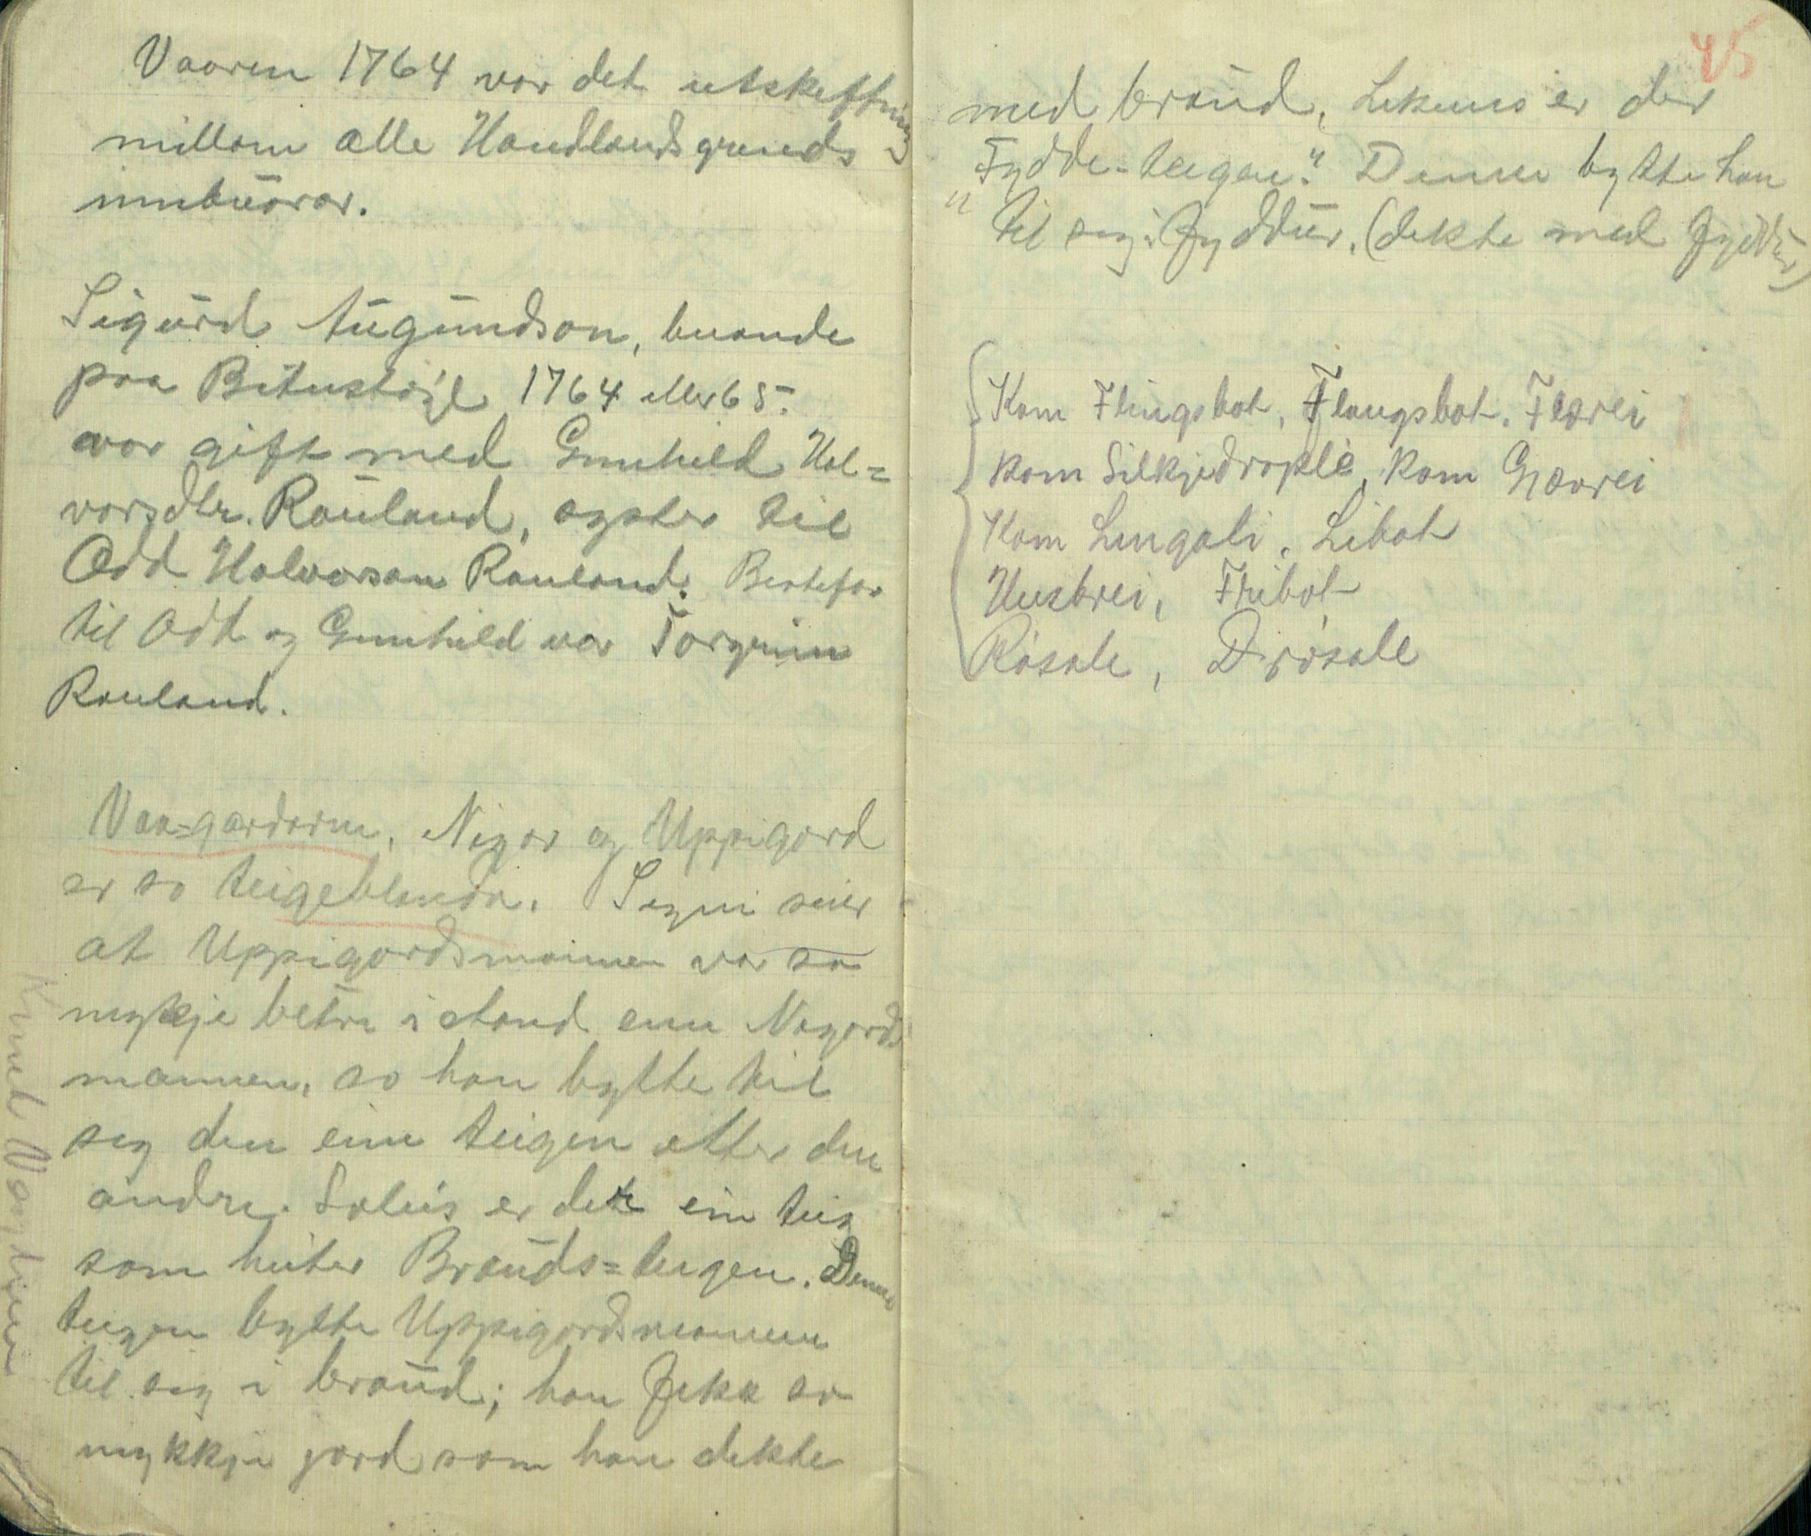 Vaaren 1764 var det utskiftning
millom alle Haudlandsgrends
innbuarar.
Sigurd Augundson, buande
paa Bitustøyl 1764 eller 65.
var gift med Gunhild Hal=
vorsdtr. Rauland, syster til
Odd Halvorson Rauland. Bestefar
til Odd og Gunhild var Torgrim
Rauland.
Vaa=gardarne, Nigar og Uppigard
er so teigeblanda. Segni seier
at Uppigardsmannen var so
mykje betre i stand enn Nigards
mannen, so han bytte til
seg den eine teigen etter den
andre. Soleis er det ein teig
som heiter Brauds=teigen. Denne
teigen bytte Uppigardsmannen
til seg i braud; han fekk so
mykkje jord som han dekte
Knut Vaa
45
med braud. Likeins er der
"Fydde-teigen". Denne bytte han
til seg i fyddur. (dekte med fyddur)
Kom Flingsbot, Flaugsbot, Flærei
kom Silkjedrople, kom Gjævrei
Kom Lingali, Libot
Husbrei, Flibot
Rosale, Drosale